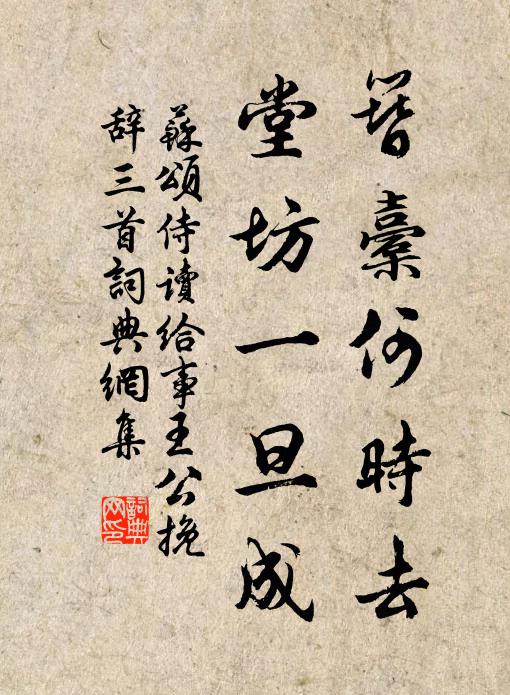 簪橐何時去
堂坊一旦成
蘇頌侍讀給事王公挽
辞三首詞典網集
詞典
网印